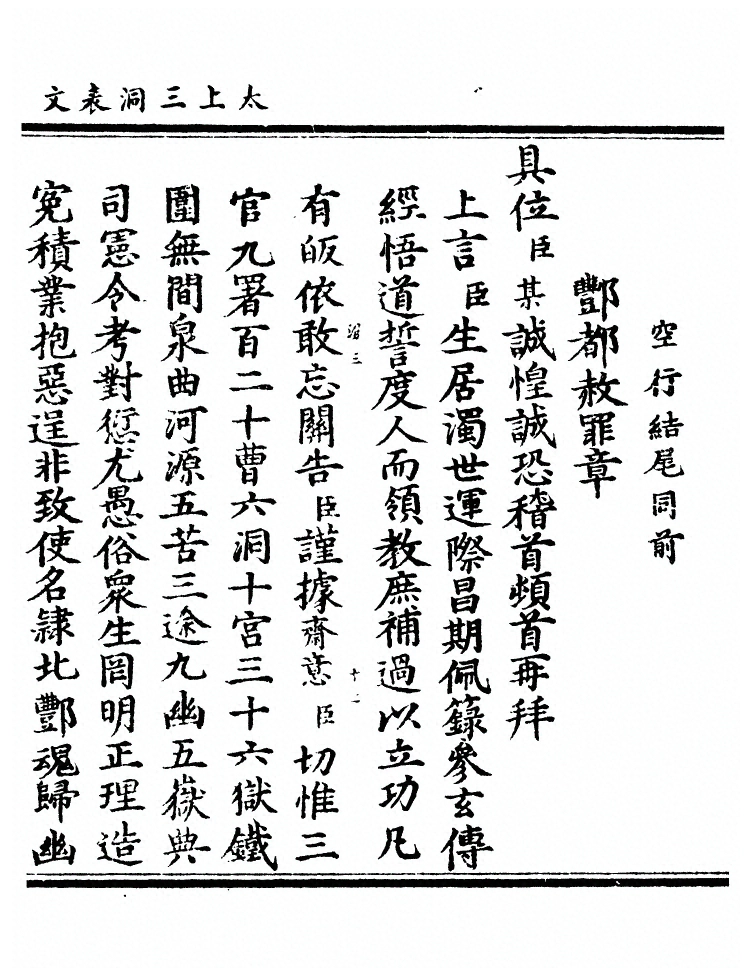 太上三洞表文
空行結尾同前
酆都赦罪章
具位臣某誠惶誠恐稽首頓首再拜
上言臣生居濁世運際昌期佩籙參玄傳
經悟道誓度人而領教庶補過以立功凡
有皈依敢忘關告臣謹據齋意臣切惟三
官九署百二十曹六洞十宮三十六獄鐵
圍無間泉曲河源五苦三途九幽五嶽典
司憲令考對愆尤愚俗衆生罔明正理造
冤積業抱惡逞非致使名隸北酆魂歸幽